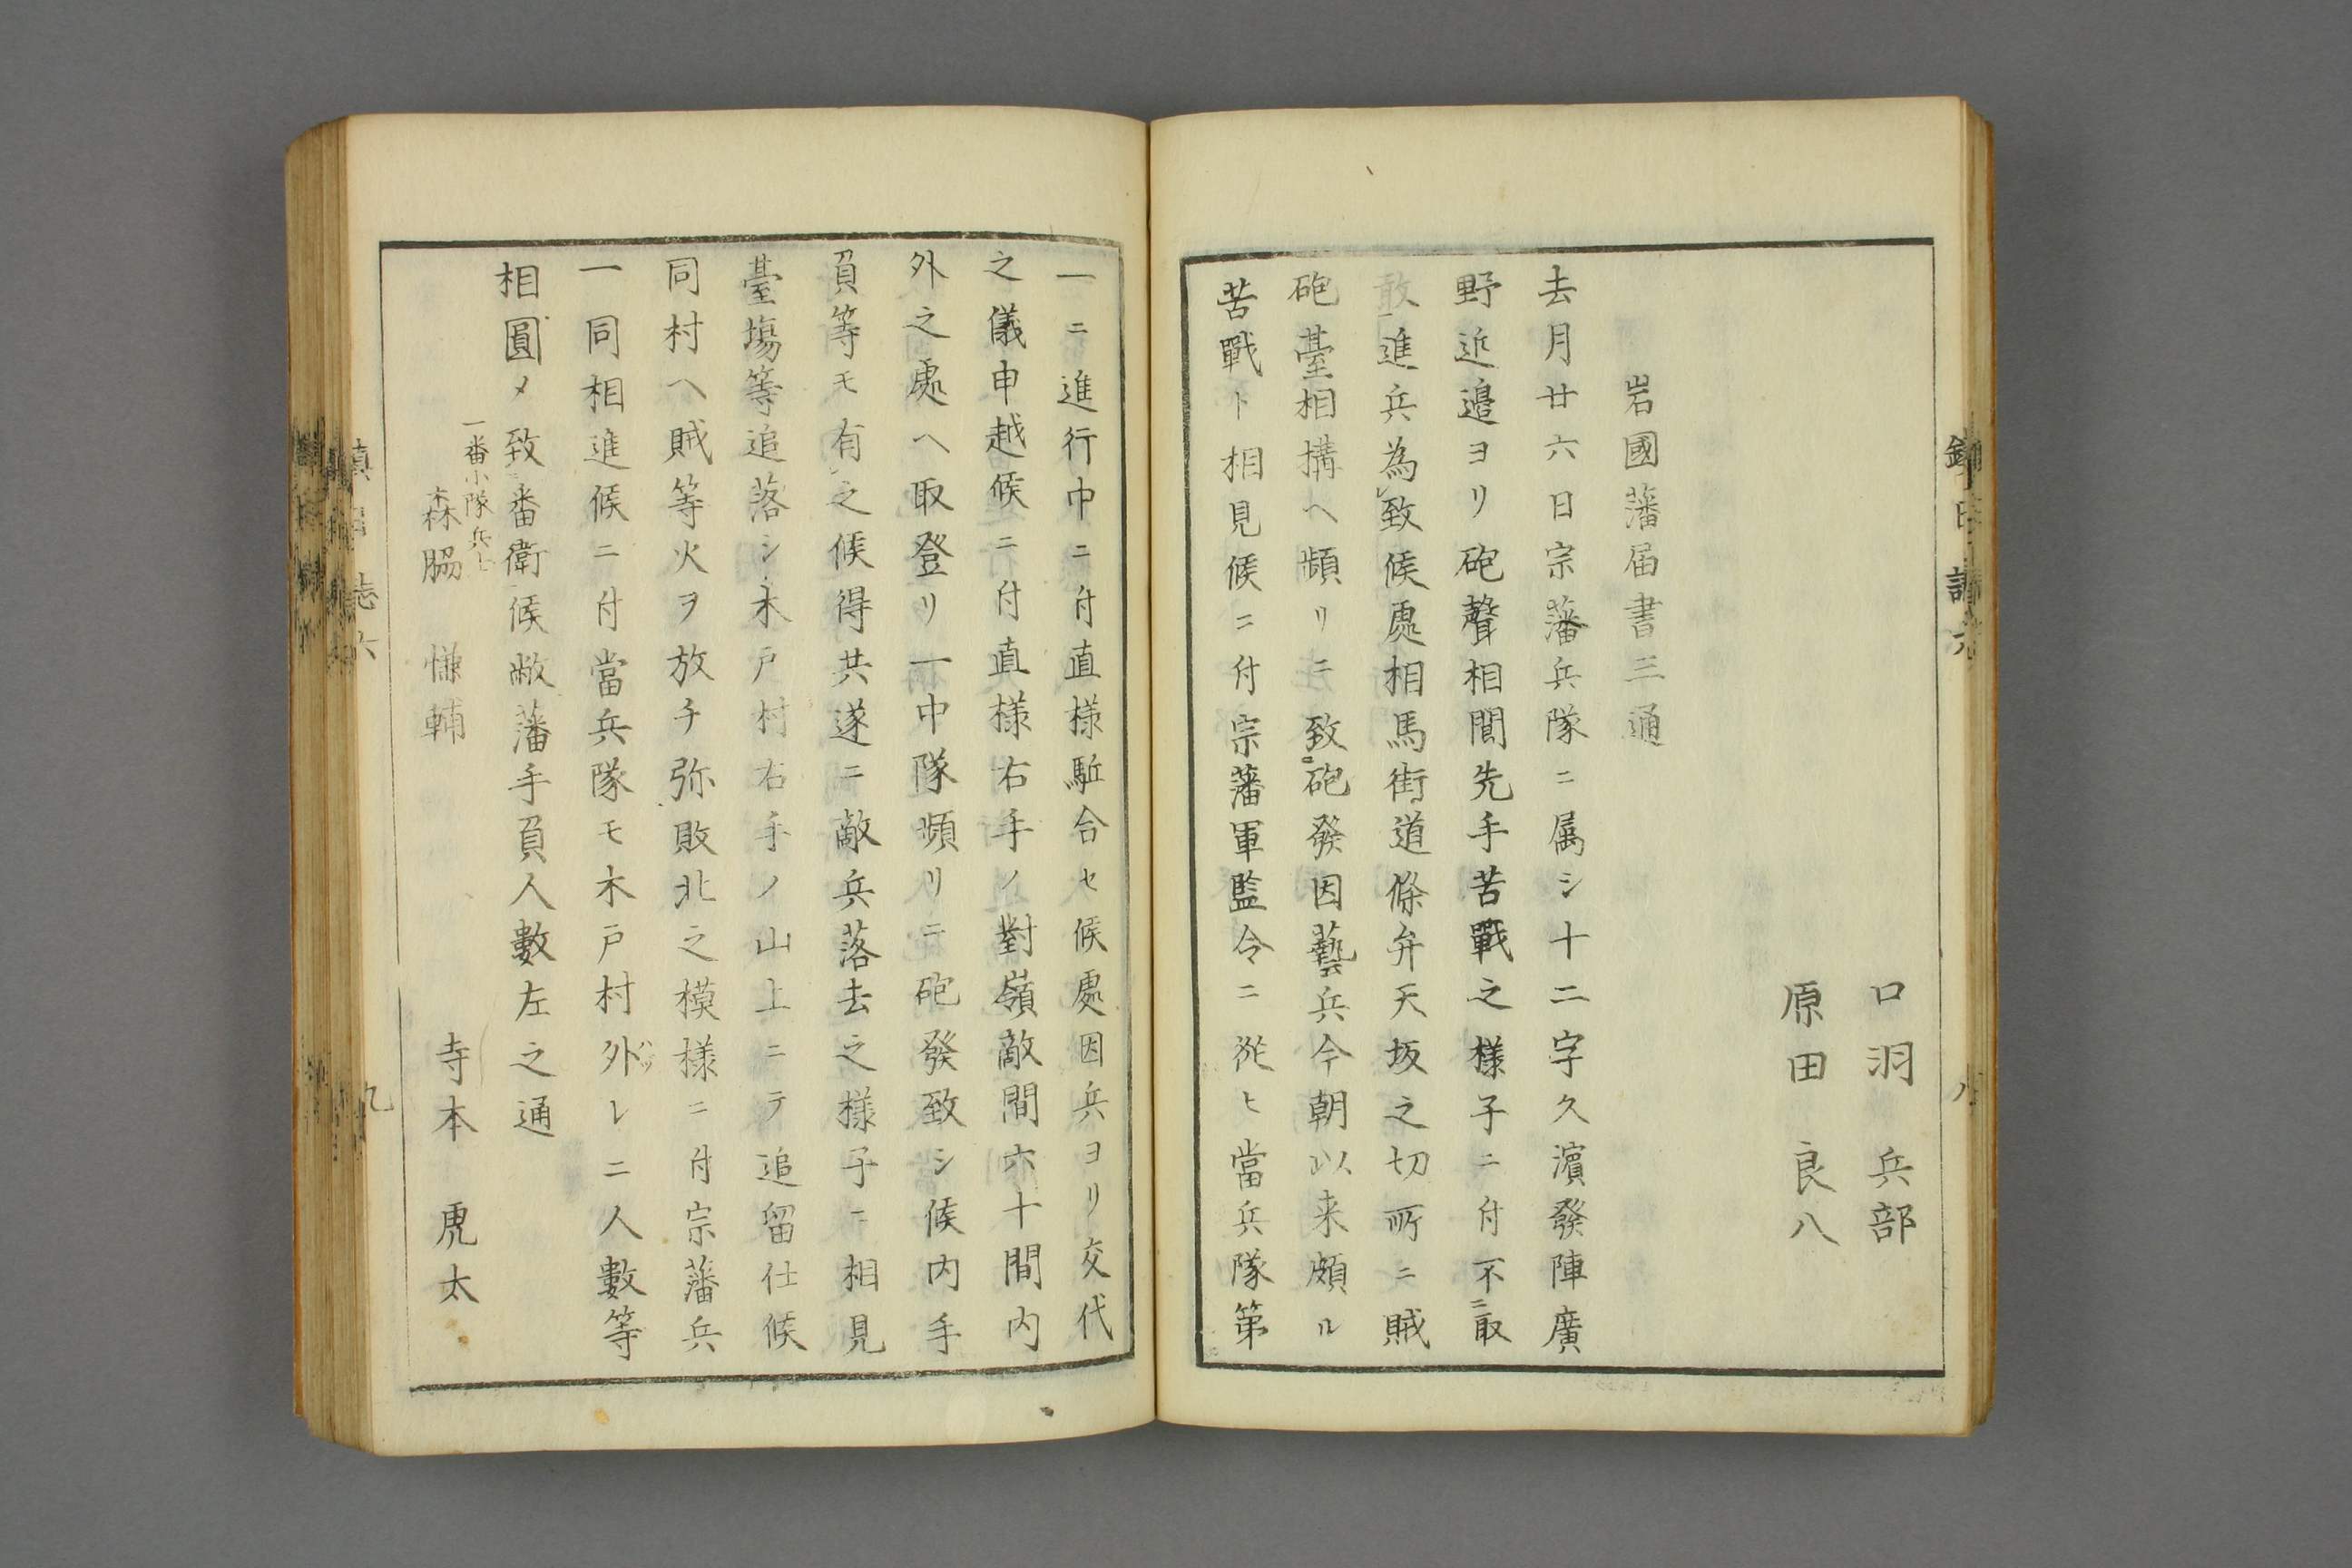 口羽兵部
原田良八
岩國藩届書三通
去月廿六日宗藩兵隊ニ属シ十二字久濱發陣廣
野近邉ヨリ砲聲相聞先手苦戰之様子ニ付不ニ取
敢一進兵為レ致候處相馬街道條弁天坂之切所ニ賊
砲臺相搆ヘ頻リニ致砲發因藝兵今朝以来頗ル
苦戰ト相見候ニ付宗藩軍監令ニ從ヒ當兵隊第
一ニ進行中ニ付直様駈合セ候處因兵ヨリ交代
之儀申越候ニ付直様右手ノ對嶺敵間六十間内
外之處ヘ取登リ一中隊頻リニ砲發致シ候内手
負等モ有レ之候得共遂ニ敵兵落去之様子ニ相見
臺塲等追落シ木戸村右手ノ山上ニテ追留仕候
同村ヘ賊等火ヲ放チ弥敗北之模様ニ付宗藩兵
一同相進候ニ付當兵隊モ木戸村外レニ人數等
相圓メ致番衛候敝藩手負人數左之通
一番小隊兵士
森脇慊輔 寺本虎太
慎 志六
九